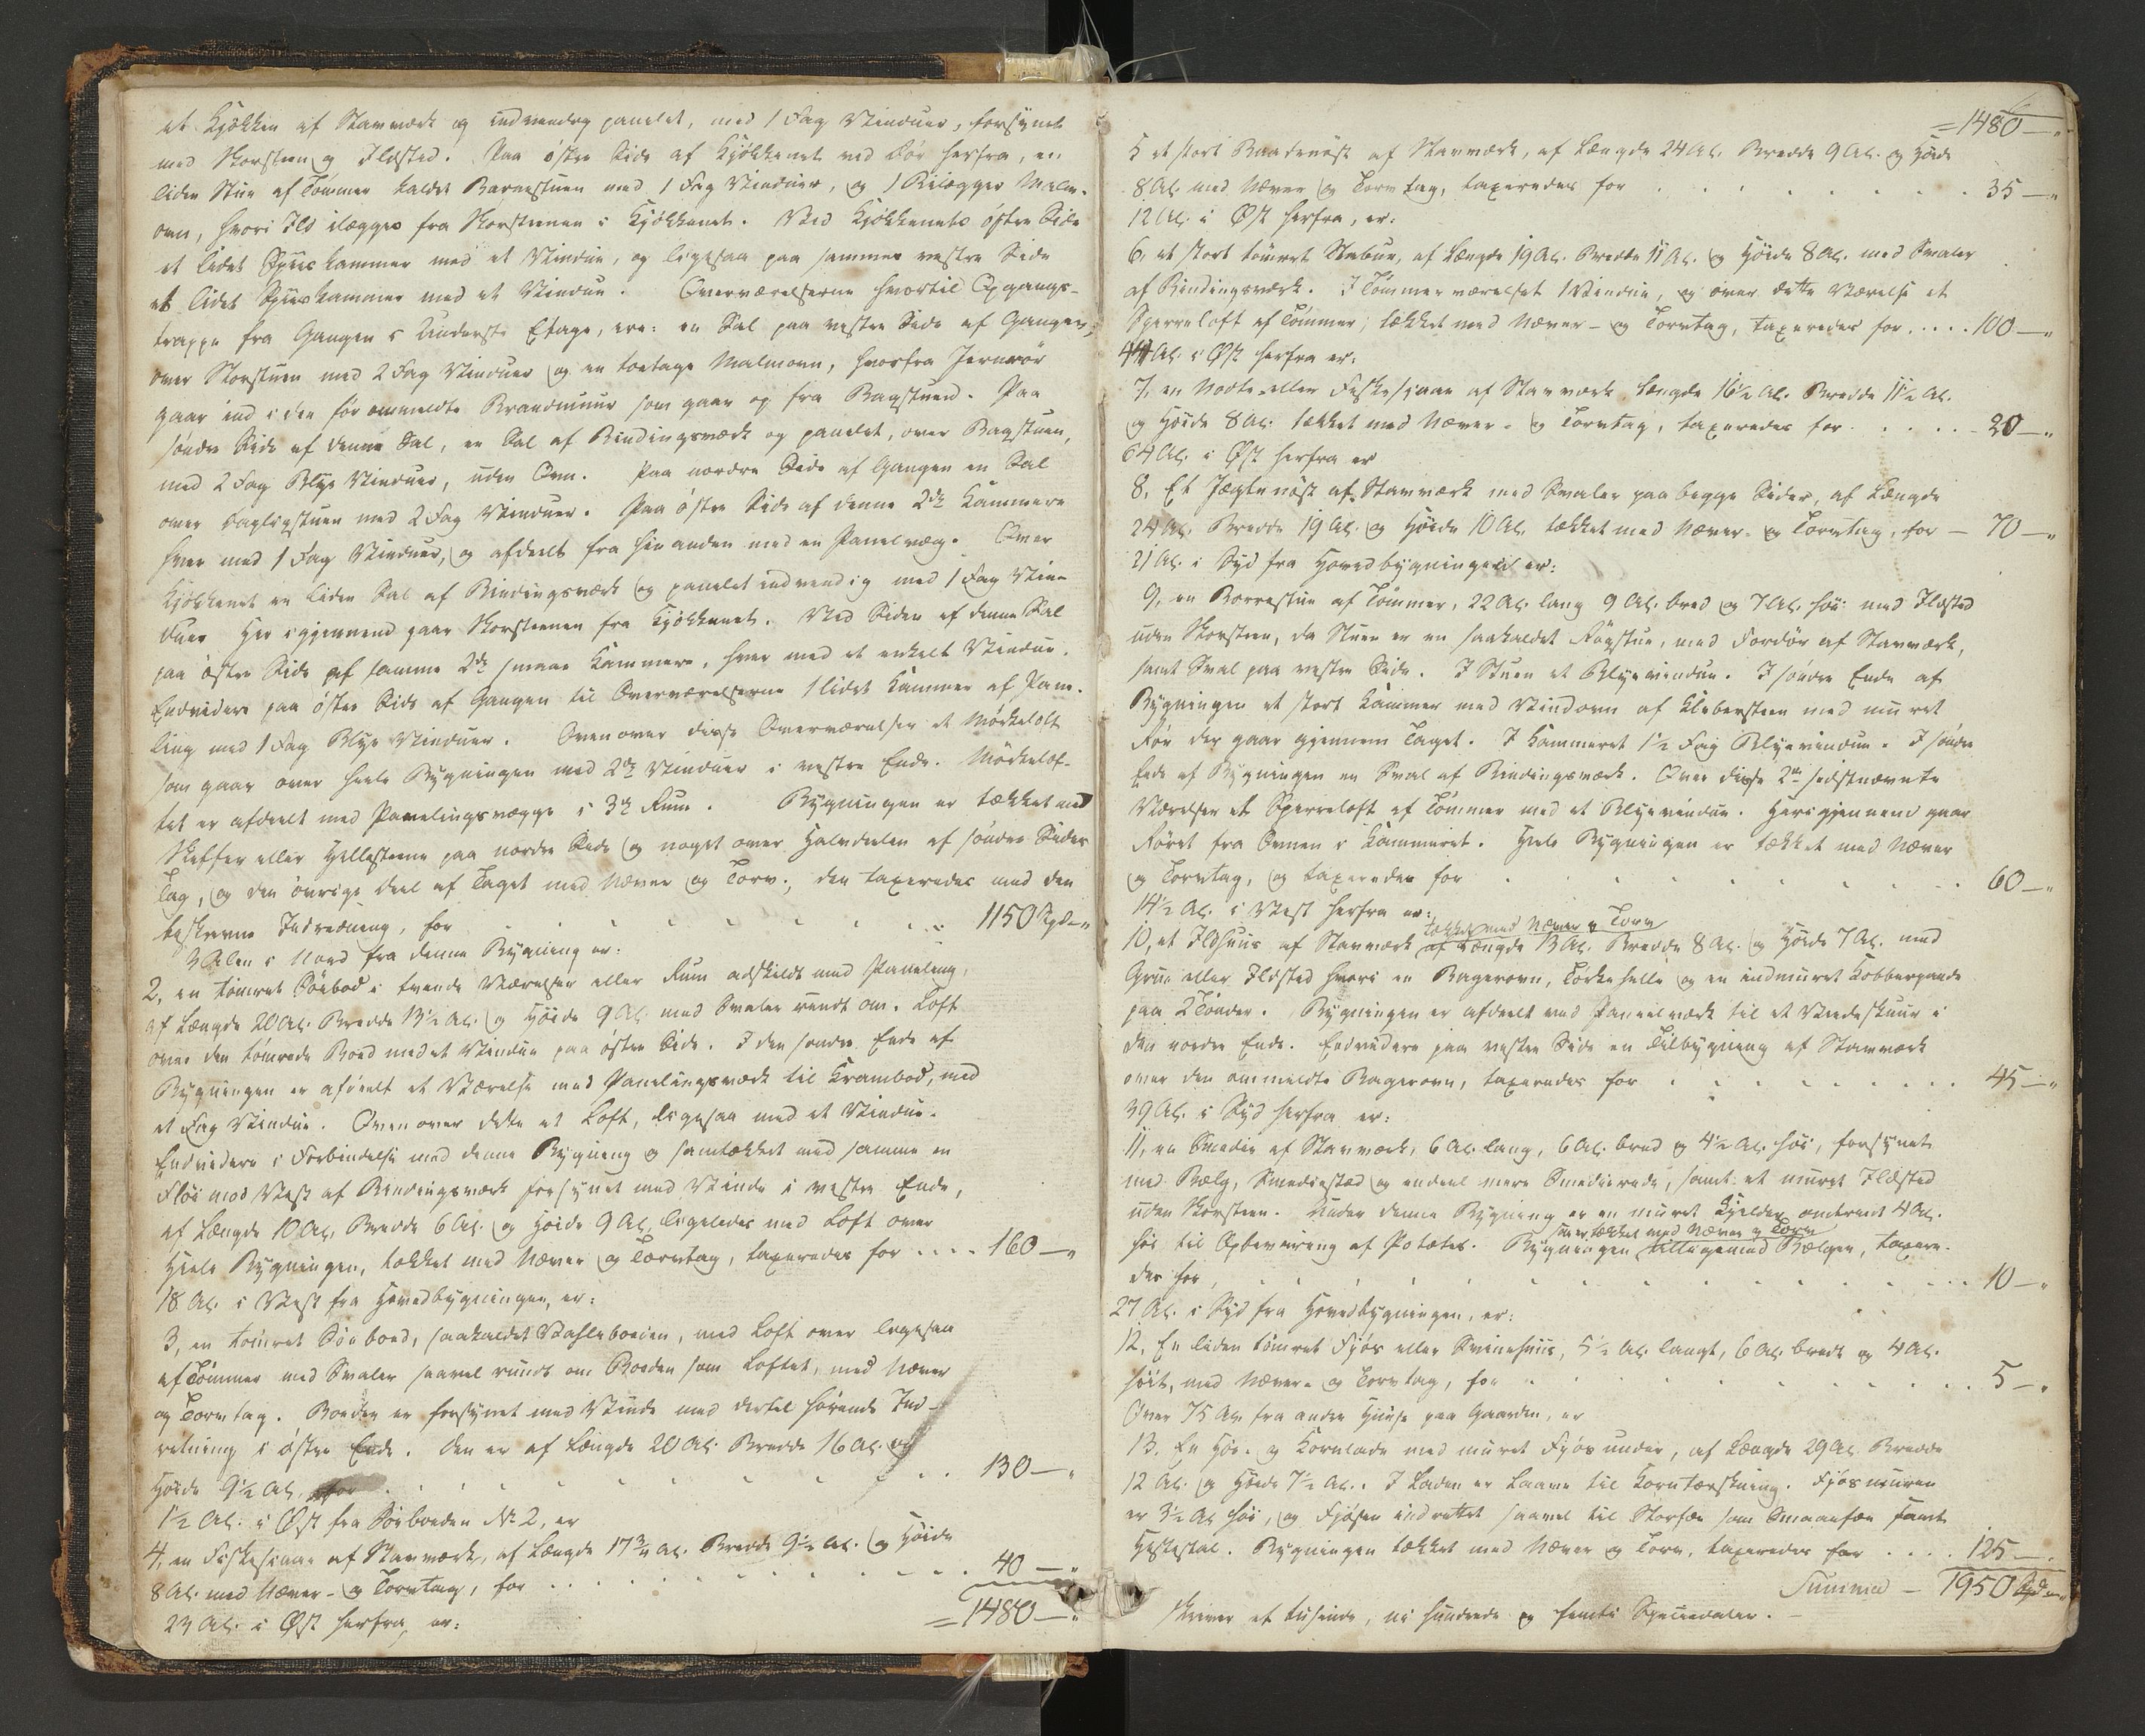 et Kjökken af Stavværk og indvendig panelet, med 1 Fag Vinduer, forsynet
med Skorsteen og Ildsted. Paa östre Side af Kjökkenet ved Dör herfra, en
liden Stue af Tömmer kaldet Barnestuen med 1 Fag Vinduer, og 1 Bilægger Malm-
ovn, hvori Ild ilægges fra Skorstenen i Kjökkenet. Ved Kjökkenets östre Side
et lidet Spiiskammer med et Vindue, og ligesaa paa sammes vestre Side
et lidet Spiiskammer med et Vindue. Overværelserne hvortil Opgangs-
trappe fra Gangen i Underste Etage, ere: en Sal paa vestre Side af Gangen,
over Storstuen med 2 Fag Vinduer og en toetages Malmovn, hvorfra Jernrör
gaar ind i den för ommeldte Brandmuur som gaar op fra Bagstuen. Paa
söndre Side af denne Sal, en Sal af Bindingsværk og panelet, over Bagstuen,
med 2 Fag Blye Vinduer, uden Ovn. Paa nordre Side af Gangen en Sal
over Dagligstuen med 2 Fag Vinduer. Paa östre Side af denne 2de Kammere
hver med 1 Fag Vinduer, og afdeelt fra hinanden med en Panelvæg. Over
Kjökkenet en liden Sal af Bindingsværk og panelet indvendig med 1 Fag Vin-
duer. Her igjennem gaar Skorstenen fra Kjökkenet. Ved Siden af denne Sal
paa östre Side af samme 2de smaae Kammere, hver med et enkelt Vindue.
Endvidere paa östre Side af Gangen til Overværelserne 1 lidet Kammer af Pane-
ling med 1 Fag Blye Vinduer. Ovenover disse Overværelser et Mörkeloft
som gaar over heele Bygningen med 2de Vinduer i vestre Ende. Mörkelof-
tet er afdeelt med Panelingsvægge i 3de Rum. Bygningen er tækket med
Skiffer eller Hellesteene paa nordre Side og noget over Halvdeelen af söndre Sides
Tag, og den övrige Deel af Taget med Næver og Torv; den taxeredes med den
beskrevne Indredning, for . . . . . . . . 1150 Spd-"
3 Alen i Nord fra denne Bygning er:
2, en tömret Söebod i tvende Værelser eller Rum adskildt med Paneling,
af Længde 20 Al. Bredde 13½ Al. og Höide 9 Al. med Svaler rundt om. Loft
over den tömrede Boed med et Vindue paa östre Side. I den söndre Ende af
Bygningen er afdeelt et Værelse med Panelingsværk til Krambod, med
et Fag Vindue. Ovenover dette et Loft, ligesaa med et Vindue.
Endvidere i Forbindelse med denne Bygning og samtækket med samme en
Flöi mod Vest af Bindingsværk forsynet med Vinde i vestre Ende,
af Længde 10 Al. Bredde 6 Al. og Höide 9 Al. ligeledes med Loft over
Heele Bygningen, tækket med Næver og Torvtag, taxeredes for . . . . 160 — "
18 Al. i Vest fra Hovedbygningen, er:
3, en tömret Söeboed, saakaldet , med Loft over ligesaa
af Tömmer med Svaler saavel rundt om Boeden som Loftet, med Næver
og Torvtag. Boeden er forsynet med Vinde med dertil hörende Ind-
retning i östre Ende. Den er af Længde 20 Al. Bredde 16 Al. og
Höide 9½ Al. for . . . . . . . . 130 — "
1½ Al. i Öst fra Söeboeden No 2, er
4, en Fiskesjaae af Stavværk, af Længde 17¾ Al. Bredde 9½ Al. og Höide
8 Al. med Næver- og Torvtag, for . . . . . . . . 40 — "
23 Al. i Öst herfra, er:
= 1480 — "
= 1480 — "
5 et stort Baadenöst af Stavværk, af Længde 24 Al. Bredde 9 Al. og Höide
8 Al. med Næver og Torvtag, taxeredes for . . . . . . . . 35 — "
12 Al. i Öst herfra, er:
6, et stort tömret Stabur, af Længde 19 Al. Bredde 11 Al. og Höide 8 Al. med Svaler
af Bindingsværk. I Tömmerværelset 1 Vindue, og over dette Værelse et
Sperreloft af Tömmer, tækket med Næver- og Torvtag, taxeredes for . . . . 100 — "
44 Al. i Öst herfra er:
7, en Nodte- eller Fiskesjaae af Stavværk Længde 16½ Al. Bredde 11½ Al.
og Höide 8 Al. tækket med Næver- og Torvtag, taxeredes for . . . . . 20 — "
64 Al. i Öst herfra er
8, Et Jægtenöst af Stavværk med Svaler paa begge Sider, af Længde
24 Al. Bredde 19 Al. og Höide 10 Al. tækket med Næver- og Torvtag, for — 70 — "
21 Al. i Syd fra Hovedbygningen er:
9, en Borrestue af Tömmer, 22 Al. lang 9 Al. bred og 7 Al. höi med Ildsted
uden Skorsteen, da Stuen er en saakaldet Rögstue, med Fordör af Stavværk,
samt Sval paa vestre Side. I Stuen et Blyevindue. I söndre Ende af
Bygningen et stort Kammer med Vindovn af Klebersteen med muret
Rör der gaar gjennem Taget. I Kammeret 1½ Fag Blyevindue. I söndre
Ende af Bygningen en Sval af Bindingsværk. Over disse 2de sidstnævnte
Værelser et Sperreloft af Tömmer med et Blyevindue. Herigjennem gaar
Röret fra Ovnen i Kammeret. Hele Bygningen er tækket med Næver
og Torvtag, og taxeredes for . . . . . . . . 60 — "
14½ Al. i Vest herfra er:
tækket med Næver og Torv
10, et Ildhuus af Stavværk af Længde 13 Al. Bredde 8 Al. og Höide 7 Al. med
Grue eller Ildsted hvori en Bagerovn, Törkehelle og en indmuret Kobberpande
paa 2 Tönder. Bygningen er afdeelt med Paneelværk til et Vedeskuur i
den nordre Ende. Endvidere paa vestre Side en Tilbygning af Stavværk
over den ommeldte Bagerovn, taxeredes for . . . . . . . . 45 — "
39 Al. i Syd herfra er:
11, en Smedie af Stavværk, 6 Al. lang, 6 Al. bred og 4½ Al. höi, forsynet
med Bælg, Smediested og endeel mere Smedierede, samt et muret Ildsted
uden Skorsteen. Under denne Bygning er en muret Kjelder omtrent 4 Al.
höi til Opbevaring af Potetes. Bygningen tilligemed Bælgen, taxere-
tækket med Næver og Torv
des for, . . . . . . . . 10 — "
27 Al. i Syd fra Hovedbygningen, er:
12, En liden tömret Fjös eller Sviinehuus, 5½ Al. langt, 6 Al. bredt og 4 Al.
höit, med Næver- og Torvtag, for . . . . . . . . 5 — "
Over 75 Al. fra andre Huuse paa Gaarden, er
13. En Höe- og Kornlade med muret Fjös under, af Længde 29 Al. Bredde
12 Al. og Höide 7½ Al. I Laden er Laave til Korntærskning. Fjösmuren
er 3½ Al höi, og Fjösen indrettet saavel til Storfæe som Smaafæe samt
Hestestal. Bygningen tækket med Næver og Torv, taxeredes for . . . . 125 — "
Summa — 1950 Spd — "
skriver et tusinde, ni hundrede og femti Speciedaler. —